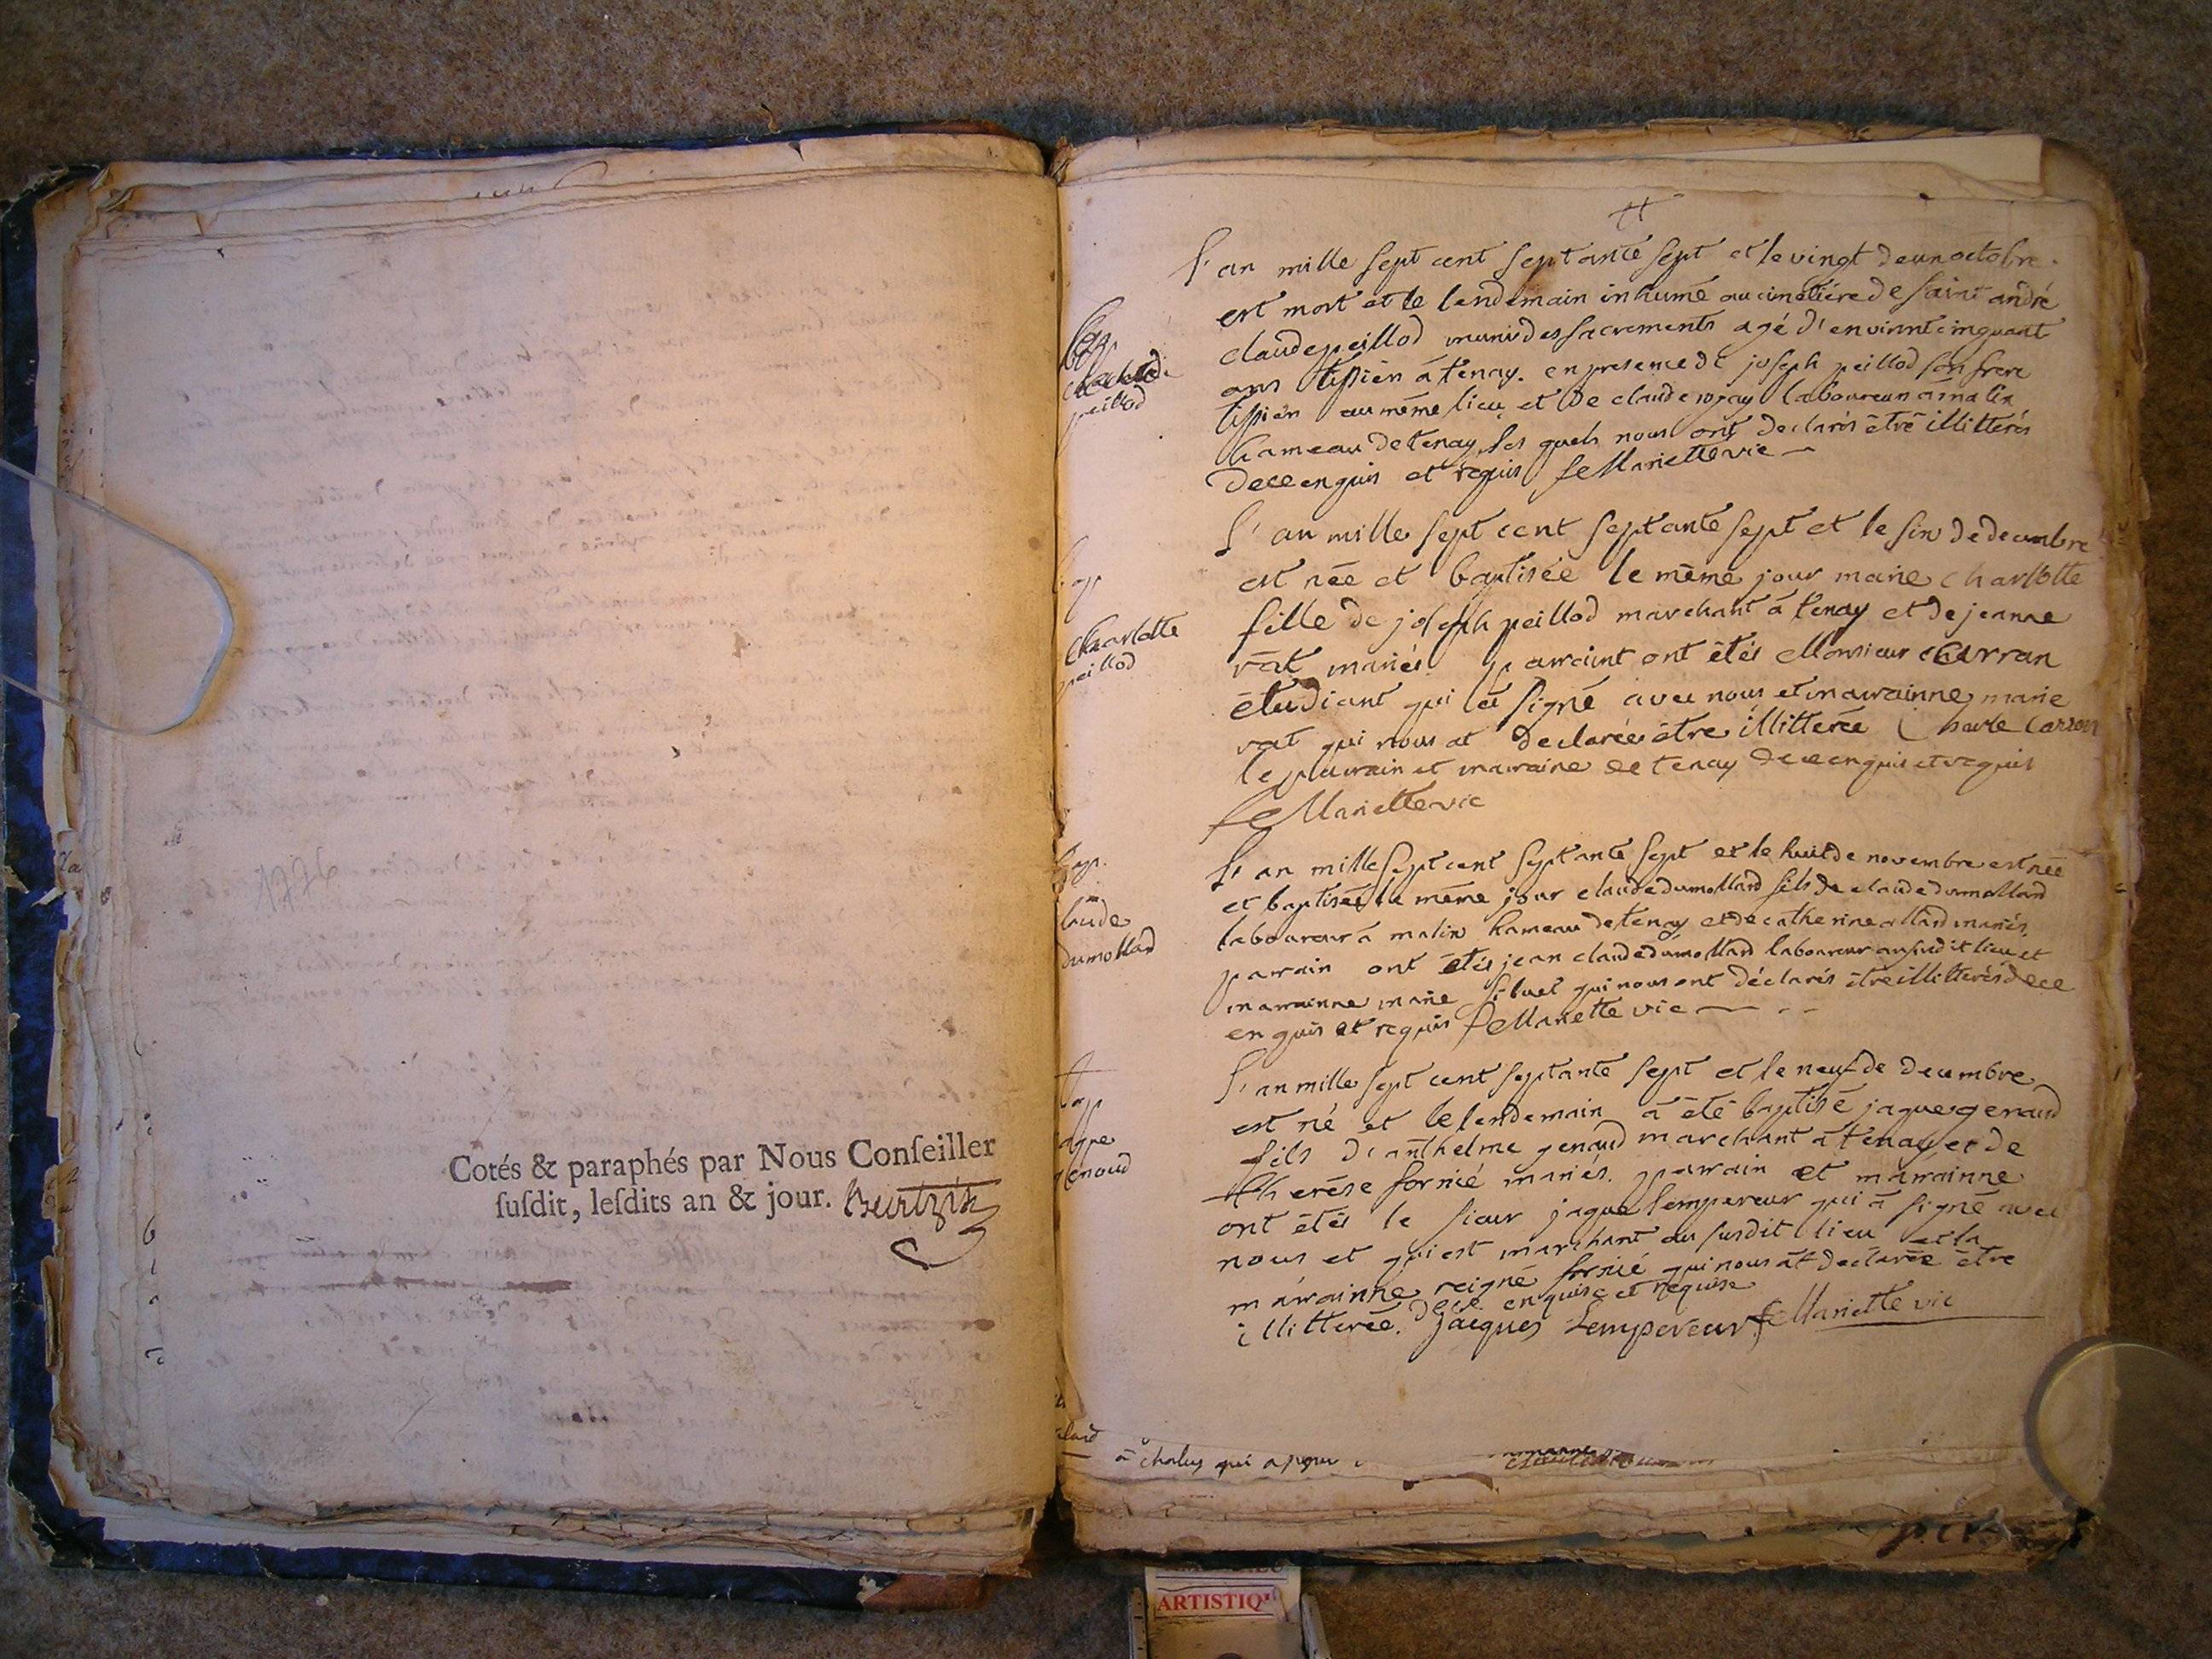 1776
Cotés & paraphés par Nous Conſeiller
ſuſdit, leſdits an & jour.
L'an mille sept cent septante sept et le vingt deux octobre
est mort et le lendemain inhumé au cimetiére de saint andré
claude peillod munis des sacrements agé d'environt cinquant
ans tissien á tenay. en presence de joseph peillod son frere
tissien au même lieu et de claude laboureur á malix
hameau de tenay les quels nous ont declarés être illitterés
de ce enquis et requis Mariette vic
peillod
L'an mille sept cent septante sept et le six de decembre
est née et baptisée le même jour marie charlotte
fille de joseph peillod marchant á tenay et de jeanne
vat mariés. parraint ont étés Monsieur
étudiant qui at signé avec nous et marrainne marie
vat qui nous at declarée être illitterée Charle
le parrain et marraine de tenay de ce enquis et requis
Mariette vic
Charlotte
peillod
L'an mille sept cent septante sept et le huit de novembre est née
et baptisée le même jour claude dumollard fils de claude dumollard
laboureur á malix hameau de tenay et de catherine allard mariés.
parrain ont étés jean claude dumollard laboureur au sudit lieu et
marrainne marie qui nous ont déclarés être illitterés de ce
enquis et requis Mariette vic
bap.
laude
dumollard
L'an mille sept cent septante sept et le neuf de decembre
est né et le lendemain á été baptisé jaque genaud
fils d'anthelme genaud marchant á tenay et de
therése fornié mariés. parrain et marrainne
ont étés le sieur jaque lempereur qui á signé avec
nous et qui est marchant au susdit lieu et la
marrainne reigne fornié qui nous at declarée être
illitterée. de ce enquise et requise
Jacques Lempereur Mariette vic
bap
aque
genaud
á chaley qui a
ARTISTIQ